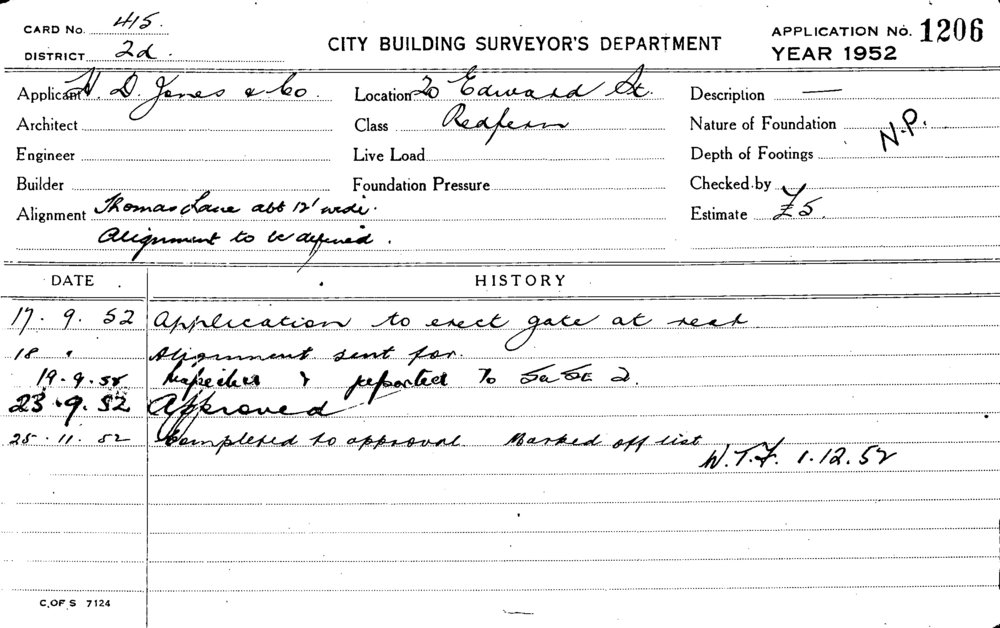 CARD No. 415.
DISTRICT 2d.
CITY BUILDING SURVEYOR'S DEPARTMENT
APPLICATION No. 1206
YEAR 1952
Applicant H. D. Jones & Co.
Location 20 Edward St.
Description —
Architect
Class Redfern
Nature of Foundation N.P.
Engineer
Live Load
Depth of Footings
Builder
Foundation Pressure
Checked by
Alignment Thomas Lane abt 12' wide.
Estimate £5.
Alignment to be defined.
DATE HISTORY
17. 9. 52 Application to erect gate at rear
18 " Alignment sent for.
19.9.52 Inspected & reported to
23.9.52 Approved
25.11.52 Completed to approval. Marked off list
W.T.F. 1.12.52
C. OF S 7124